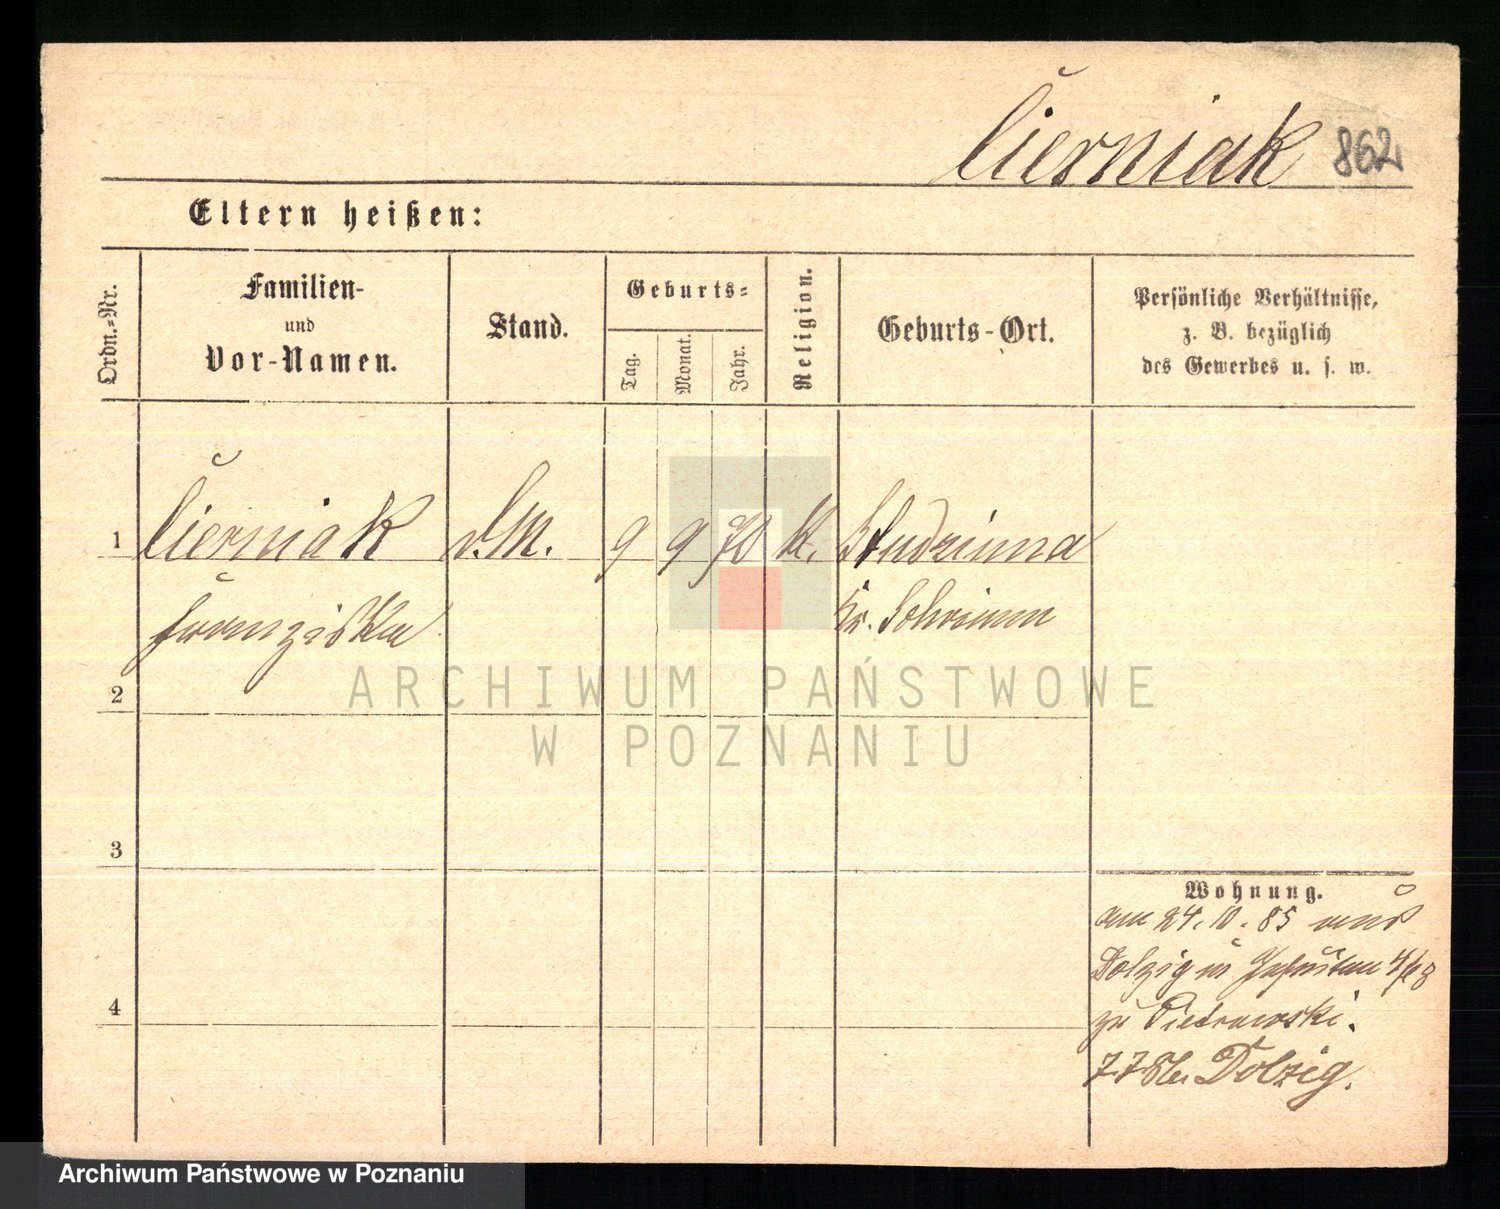 Čierniak 862
Eltern heißen:
Ordn.-Nr.
Familien-
und
Vor-Namen.
Stand.
Geburts-
Tag.
Monat.
Jahr.
Religion.
Geburts-Ort.
Persönliche Verhältnisse,
z. B. bezüglich
des Gewerbes u. s. w.
1 Čierniak d.M. 9 9 70 kt. Studzianna
Franziska Kr. Schrimm
2
3
4
Wohnung.
am 24.10.85 aus
Dolzig in 4/68
zu Pietrowski.
Dolzig.
ARCHIWUM PAŃSTWOWE
W POZNANIU
Archiwum Państwowe w Poznaniu